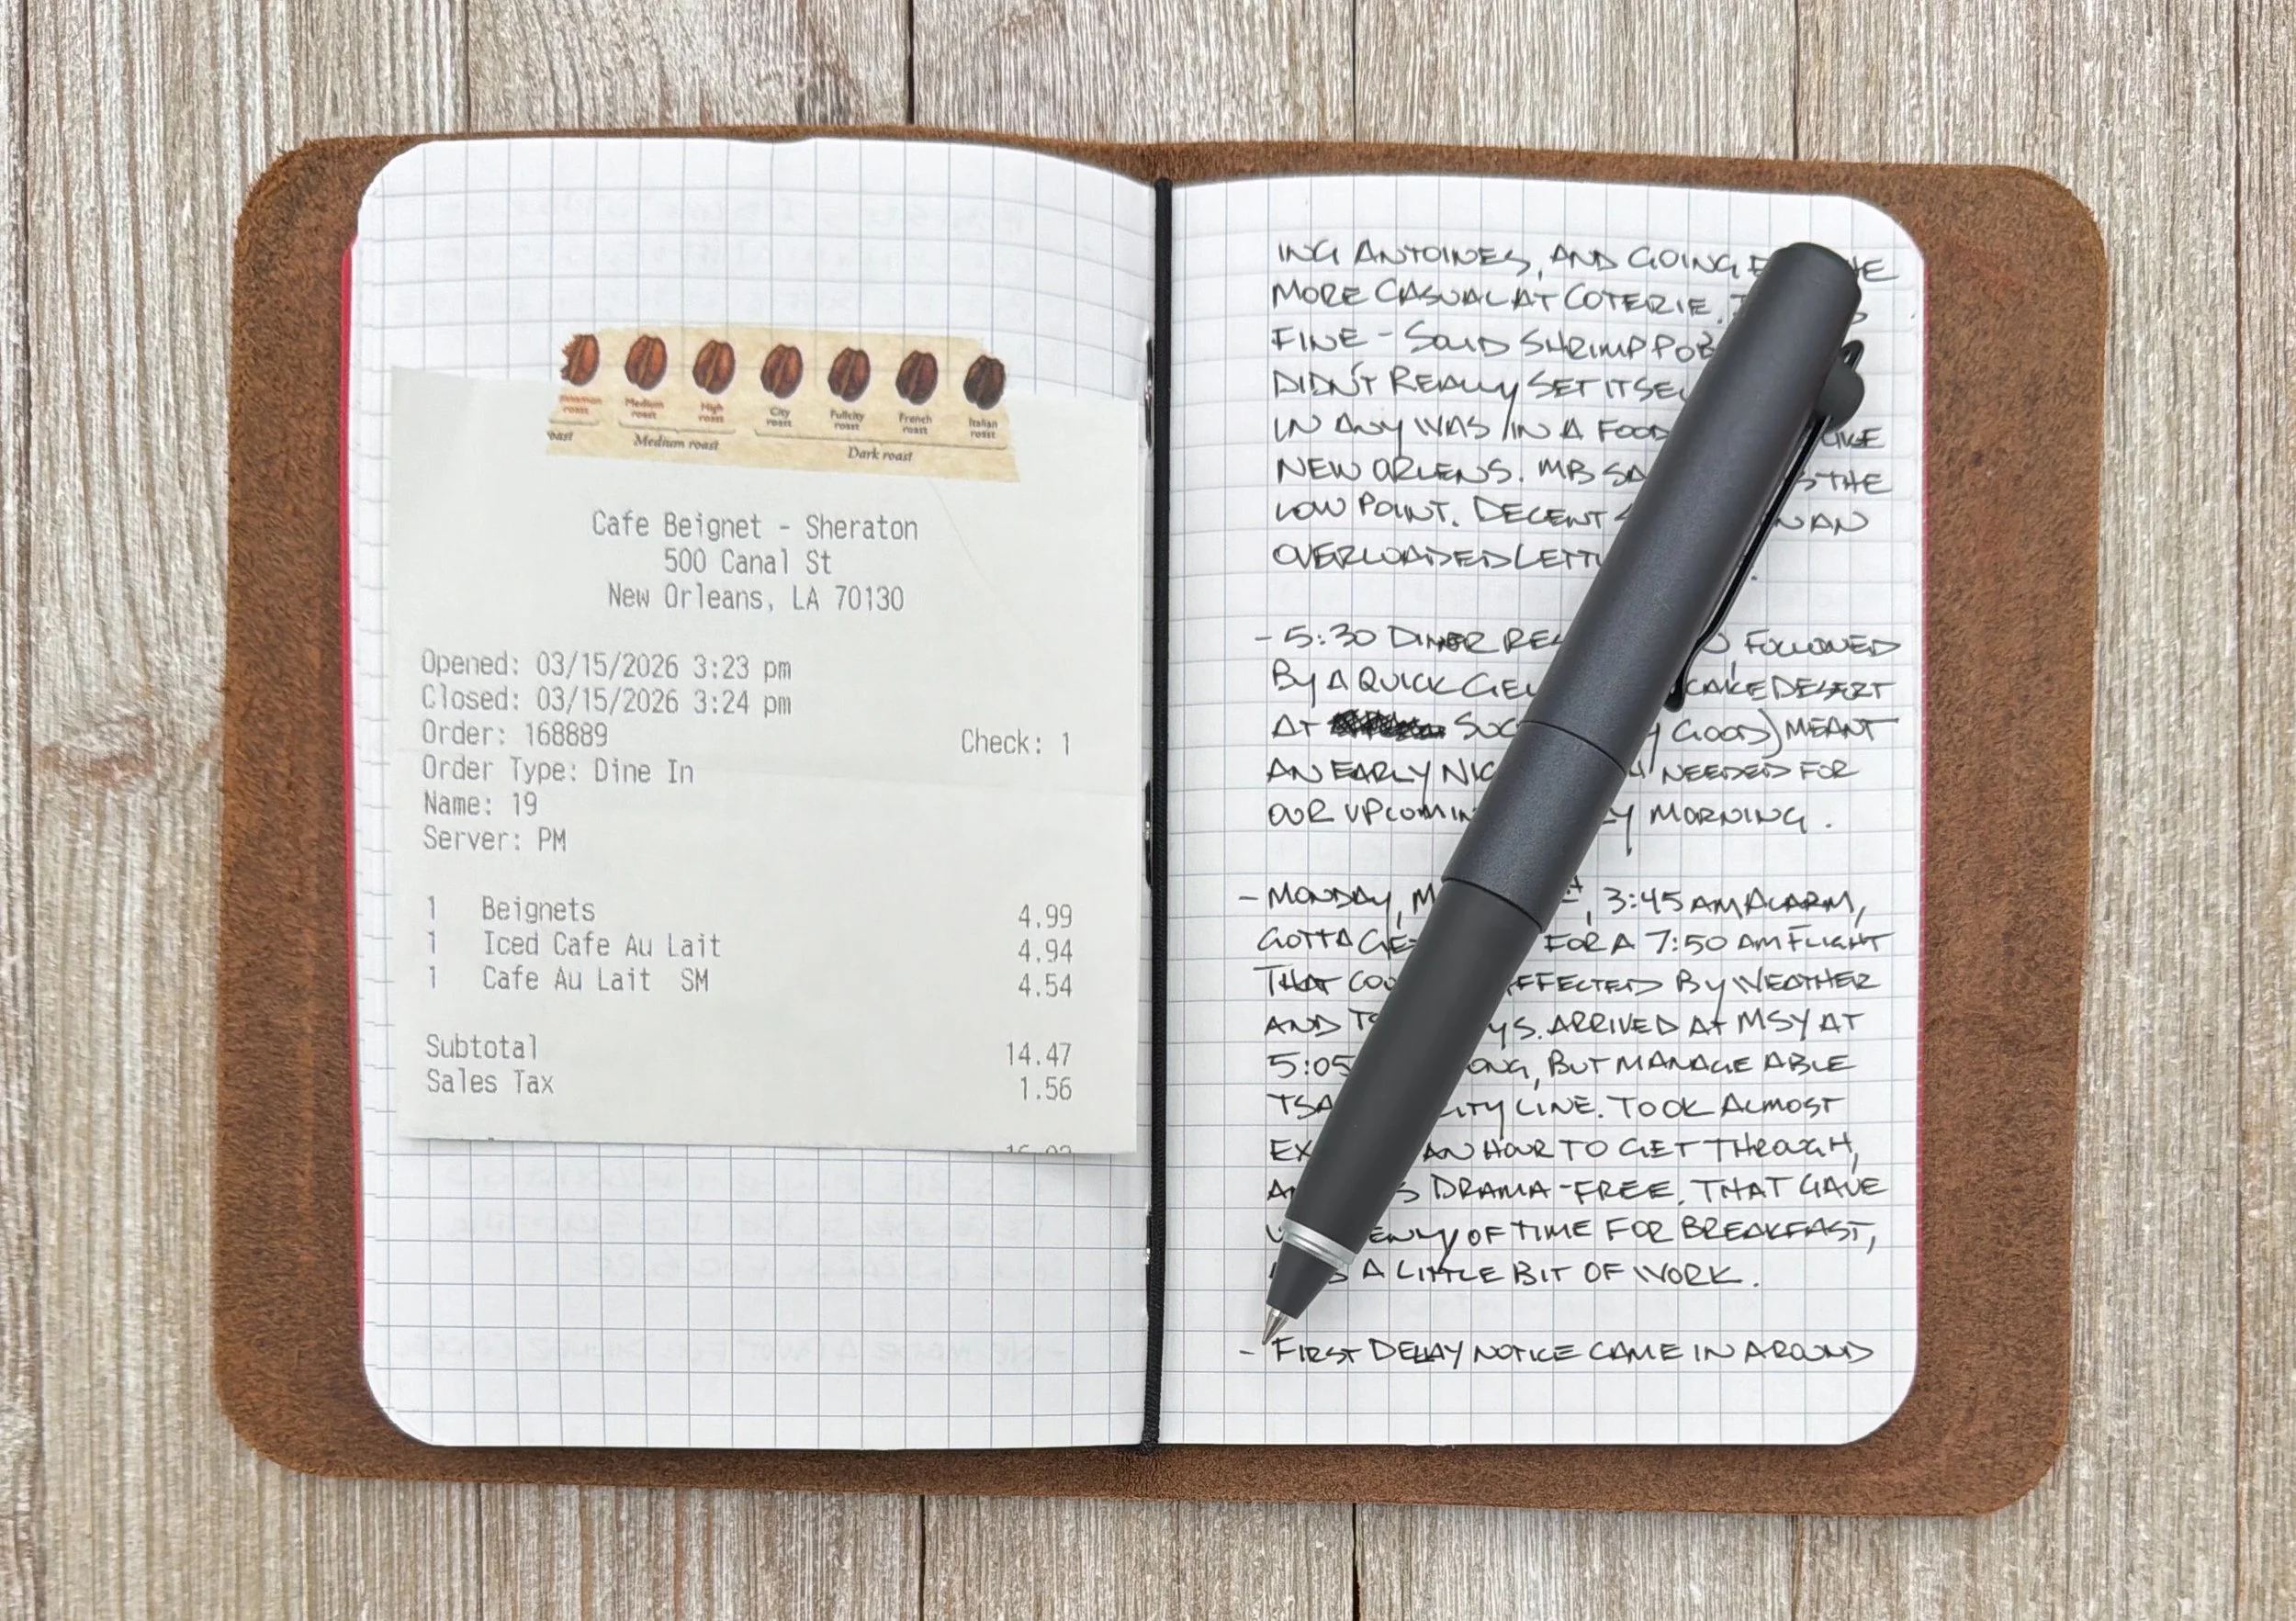 Cinnamon roast
Medium roast
High roast
City roast
Fullcity roast
French roast
Italian roast
oast
Medium roast
Dark roast
Cafe Beignet - Sheraton
500 Canal St
New Orleans, LA 70130
Opened: 03/15/2026 3:23 pm
Closed: 03/15/2026 3:24 pm
Order: 168889
Check: 1
Order Type: Dine In
Name: 19
Server: PM
1 Beignets 4.99
1 Iced Cafe Au Lait 4.94
1 Cafe Au Lait SM 4.54
Subtotal 14.47
Sales Tax 1.56
ING ANTOINES, AND GOING
MORE CASUAL AT COTERIE.
FINE - SOLID SHRIMP POB
DIDN'T REALLY SET ITSE
IN ANY WAS IN A FOOD LIKE
NEW ORLENS. MB SA THE
LOW POINT. DECENT AN
OVERLOADED LETTU
- 5:30 DINER RES FOLLOWED
BY A QUICK GEL CAKE DESERT
AT SUC GOOD) MEANT
AN EARLY NIG NEEDED FOR
OUR UPCOMIN Y MORNING.
- MONDAY, M , 3:45 AM ALARM,
GOTTA GE FOR A 7:50 AM FLIGHT
THAT COU EFFECTED BY WEATHER
AND TS YS. ARRIVED AT MSY AT
5:05 ONG, BUT MANAGE ABLE
TSA ITY LINE. TOOK ALMOST
EX AN HOUR TO GET THROUGH,
A S DRAMA-FREE. THAT GAVE
ENTY OF TIME FOR BREAKFAST,
A LITTLE BIT OF WORK.
- FIRST DELAY NOTICE CAME IN AROUND